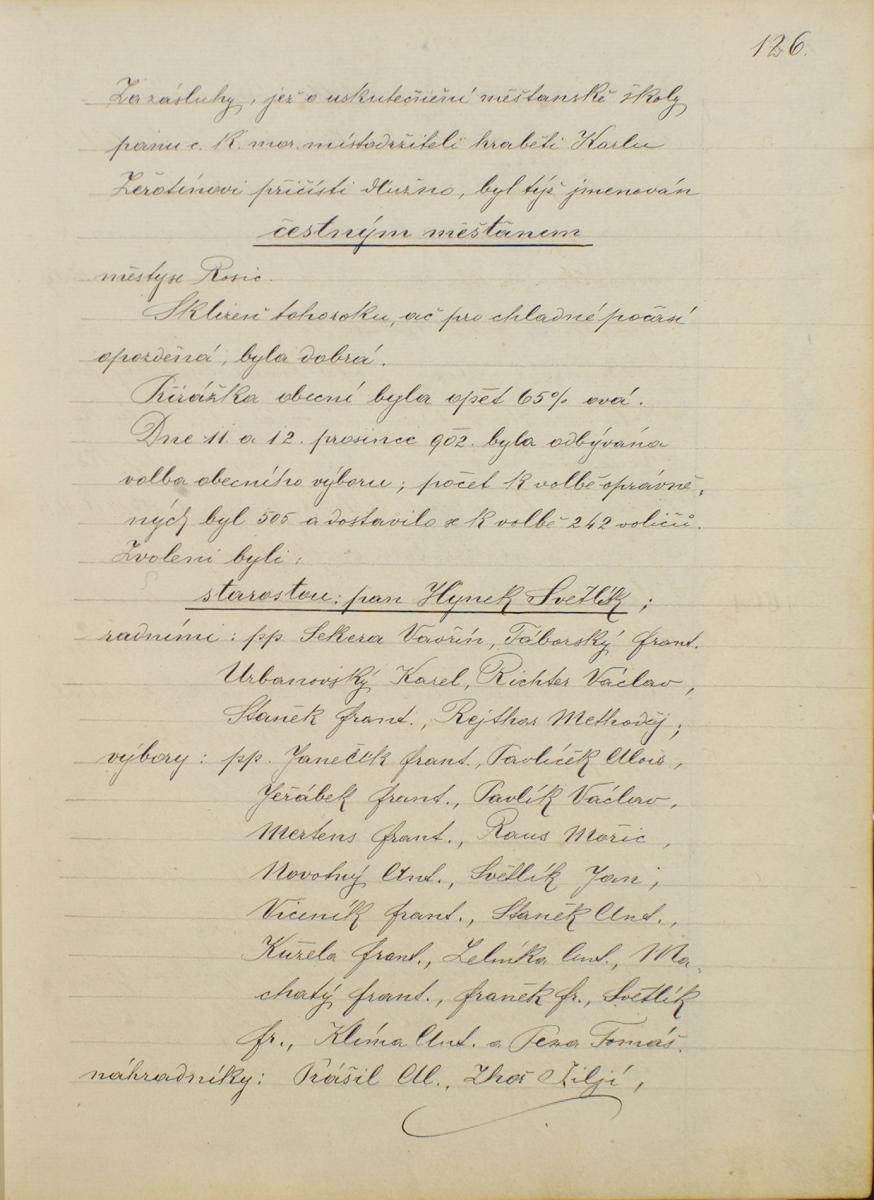 126.
Za zásluhy, jež o uskutečnění měštanské školy
panu c. k. mor. místodržiteli hraběti Karlu
Žerotínovi přičísti dlužno, byl týž jmenován
čestným měštănem
městyse Rosic.
Sklizeň toho roku, ač pro chladné počasí
opozděná, byla dobrá.
Přirážka obecní byla opět 65% ová.
Dne 11 a 12. prosince 902. byla odbývána
volba obecního výboru; počet k volbě oprávně-
ných byl 505 a dostavilo se k volbě 242 voličů.
Zvoleni byli:
starostou: pan Hynek Světlík;
radními: pp Sekera Vavřín, Táborský frant.
Urbanovský Karel, Richter Václav,
Staněk frant., Rejthar Methoděj;
výbory: pp. Janeček frant., Pavlíček Alois,
Jeřábek frant., Pavlík Václav,
Mertens frant., Raus Mořic,
Novotný Ant., Světlík Jan,
Viceník frant., Staněk Ant.,
Kužela frant., Zelinka Ant., Ma-
chatý frant., franěk fr., Světlík
fr., Klíma Ant. a Peza Tomáš.
náhradníky: Prášil Al., Zhoř Jiljí,